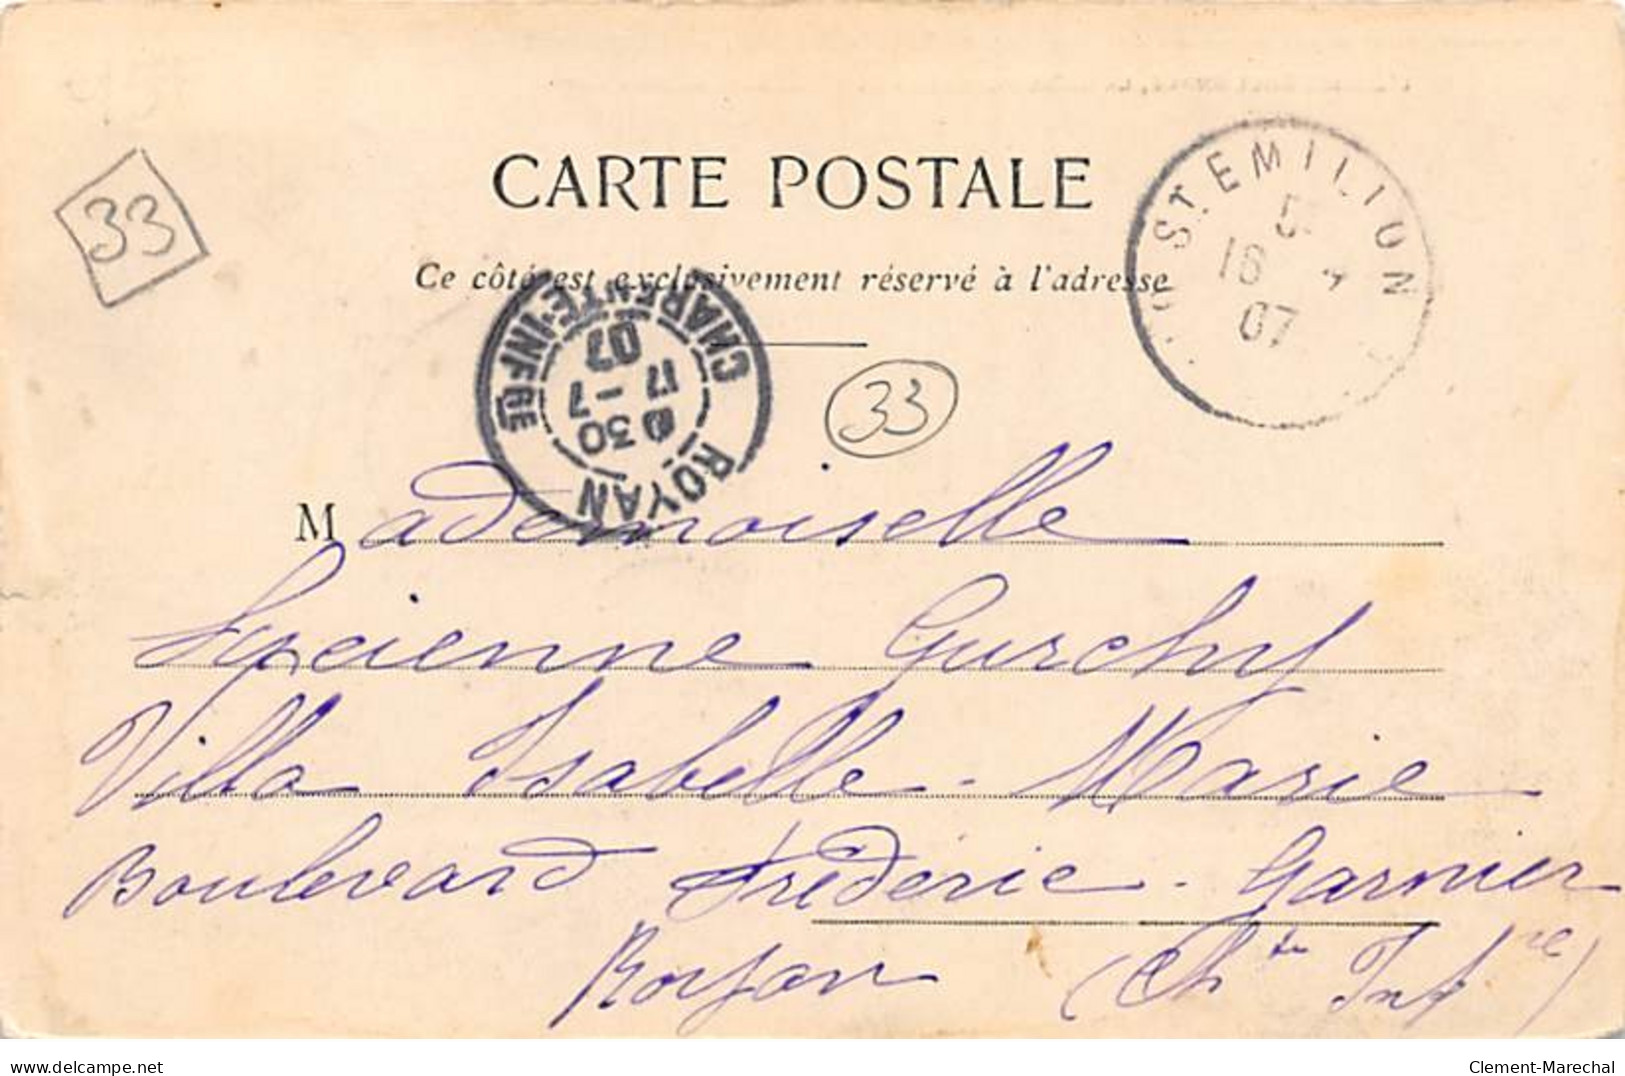 33
CARTE POSTALE
Ce côté est exclusivement réservé à l'adresse
ST EMILION
16
07
ROYAN
30
17 -7
07
CHARENTE-INFRE
33
Mademoiselle
Lucienne
Villa Isabelle-Marie
Boulevard Frédéric-Garnier
Royan (Chte Infre)
delcampe.net
Clement-Marechal